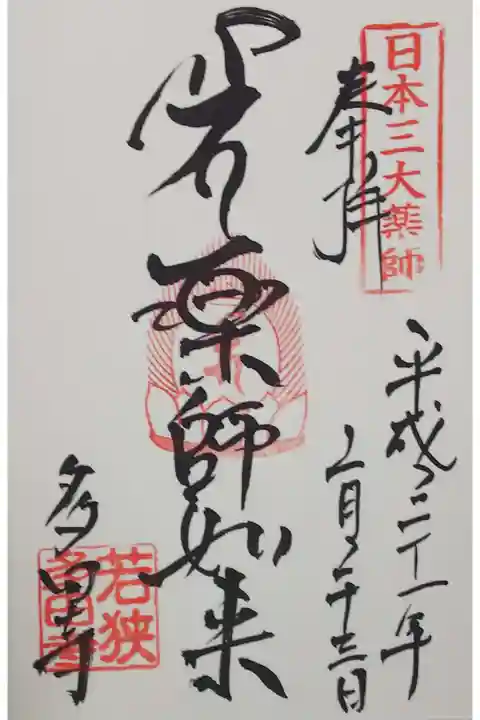 日本三大薬師
奉拝
平成二十一年
二月二十三日
岩薬師如来
多田寺
若狭
多田寺